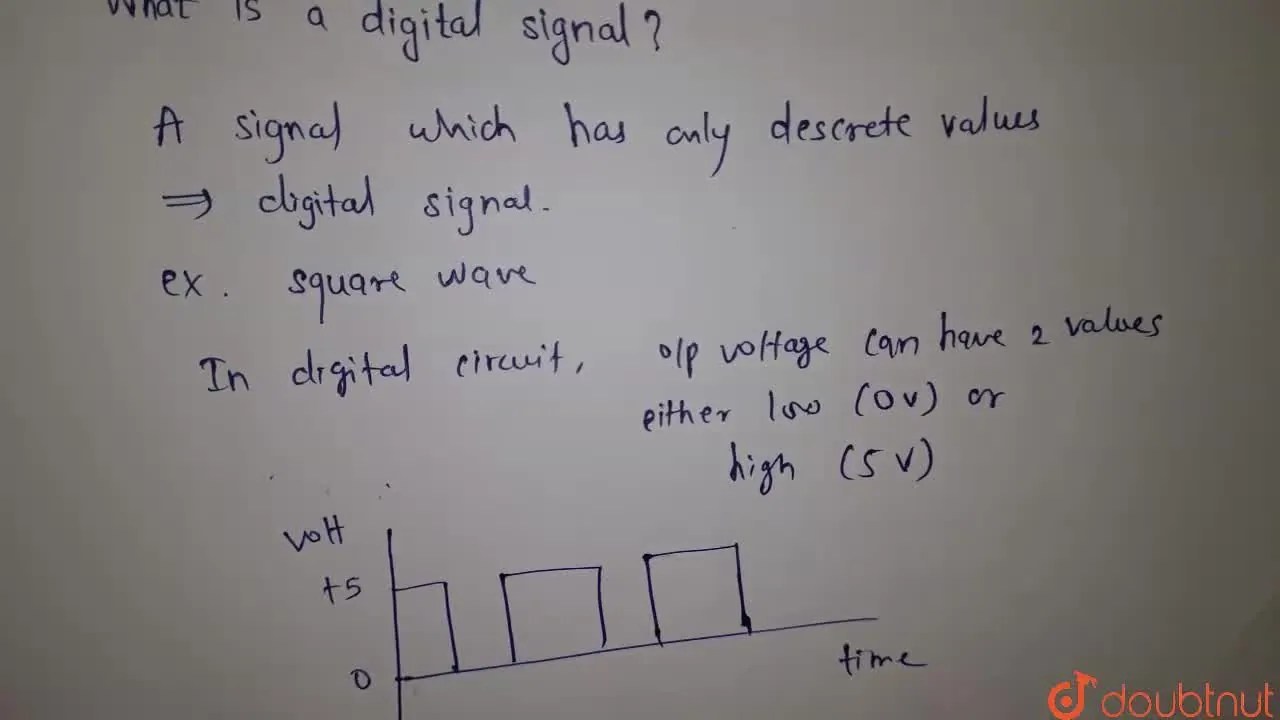 What is a digital signal?
A signal which has only descrete values
⇒ digital signal.
ex. square wave
In digital circuit, o/p voltage can have 2 values
either low (0v) or
high (5 V)
volt
+5
0
time
doubtnut